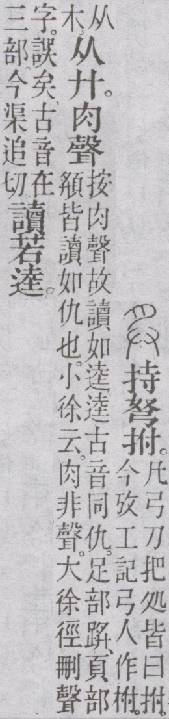 持弩拊。
凡弓刀把処皆曰拊。
今攷工記弓人作柎。
从
木
从廾。肉聲
按肉聲故讀如逵逵古音同仇。足部頁部
頯皆讀如仇也。小徐云。肉非聲。大徐徑刪聲
字。誤矣。古音在
三部。今渠追切
讀若逵。